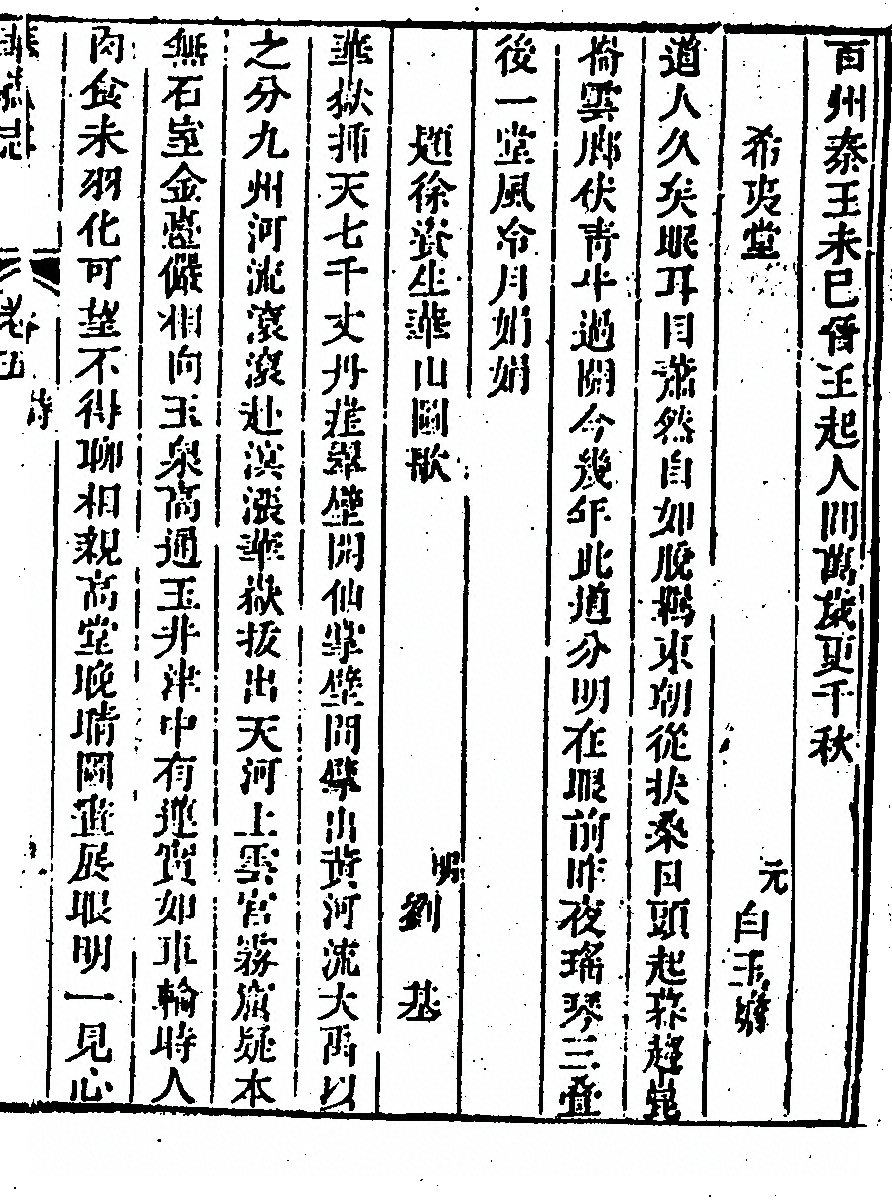 百州秦王未已晉王起人間萬歲更千秋
希夷堂
元 白玉蟾
道人久矣眠耳目蕭然自如脫羈東朝從扶桑日頭起暮趨崑
崙雲廊伏青牛過關今幾年此道分明在眼前昨夜瑤琴三疊
後一堂風冷月娟娟
題徐資生華山圖歌
明 劉基
華嶽插天七千丈丹崖翠壁開仙掌壁間擘出黃河流大禹以
之分九州河流滾滾赴溟漲華嶽拔出天河上雲官霧窟疑本
無石室金臺儼相向玉泉高通玉井津中有蓮實如車輪時人
肉食未羽化可望不得聊相親高堂晚晴圖畫展眼明一見心
華嶽志
卷五
詩